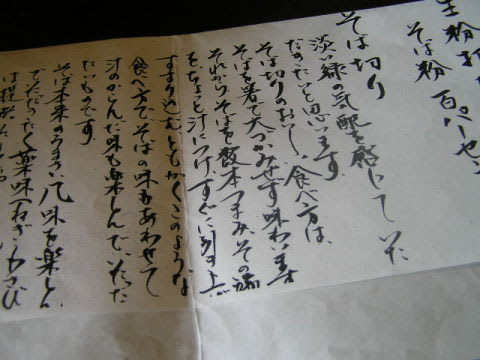 生粉打
そば粉 百パーセン
そば切り
淡い緑の気配を感じていた
だきたいと思います。
そば切りのおいしい食べ方は、
そばを箸で大づかみせず味わいます
それからそばを数本つまみ、その端
をちょっと汁につけ、すぐに引き上
すすり込む。ともかくこのような
食べ方でそばの味もあわせて
汁のからんだ味も楽しんでいただ
たいものです。
そば本来のうまい風味を楽しん
でいただく薬味(ねぎ・わさび
は